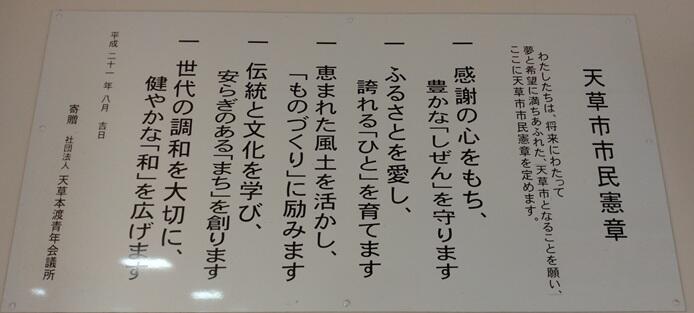 天草市市民憲章
わたしたちは、将来にわたって
夢と希望に満ちあふれた、天草市となることを願い、
ここに天草市市民憲章を定めます。
一 感謝の心をもち、
豊かな「しぜん」を守ります
一 ふるさとを愛し、
誇れる「ひと」を育てます
一 恵まれた風土を活かし、
「ものづくり」に励みます
一 伝統と文化を学び、
安らぎのある「まち」を創ります
一 世代の調和を大切に、
健やかな「和」を広げます
平成二十一年八月 吉日
寄贈 社団法人 天草本渡青年会議所